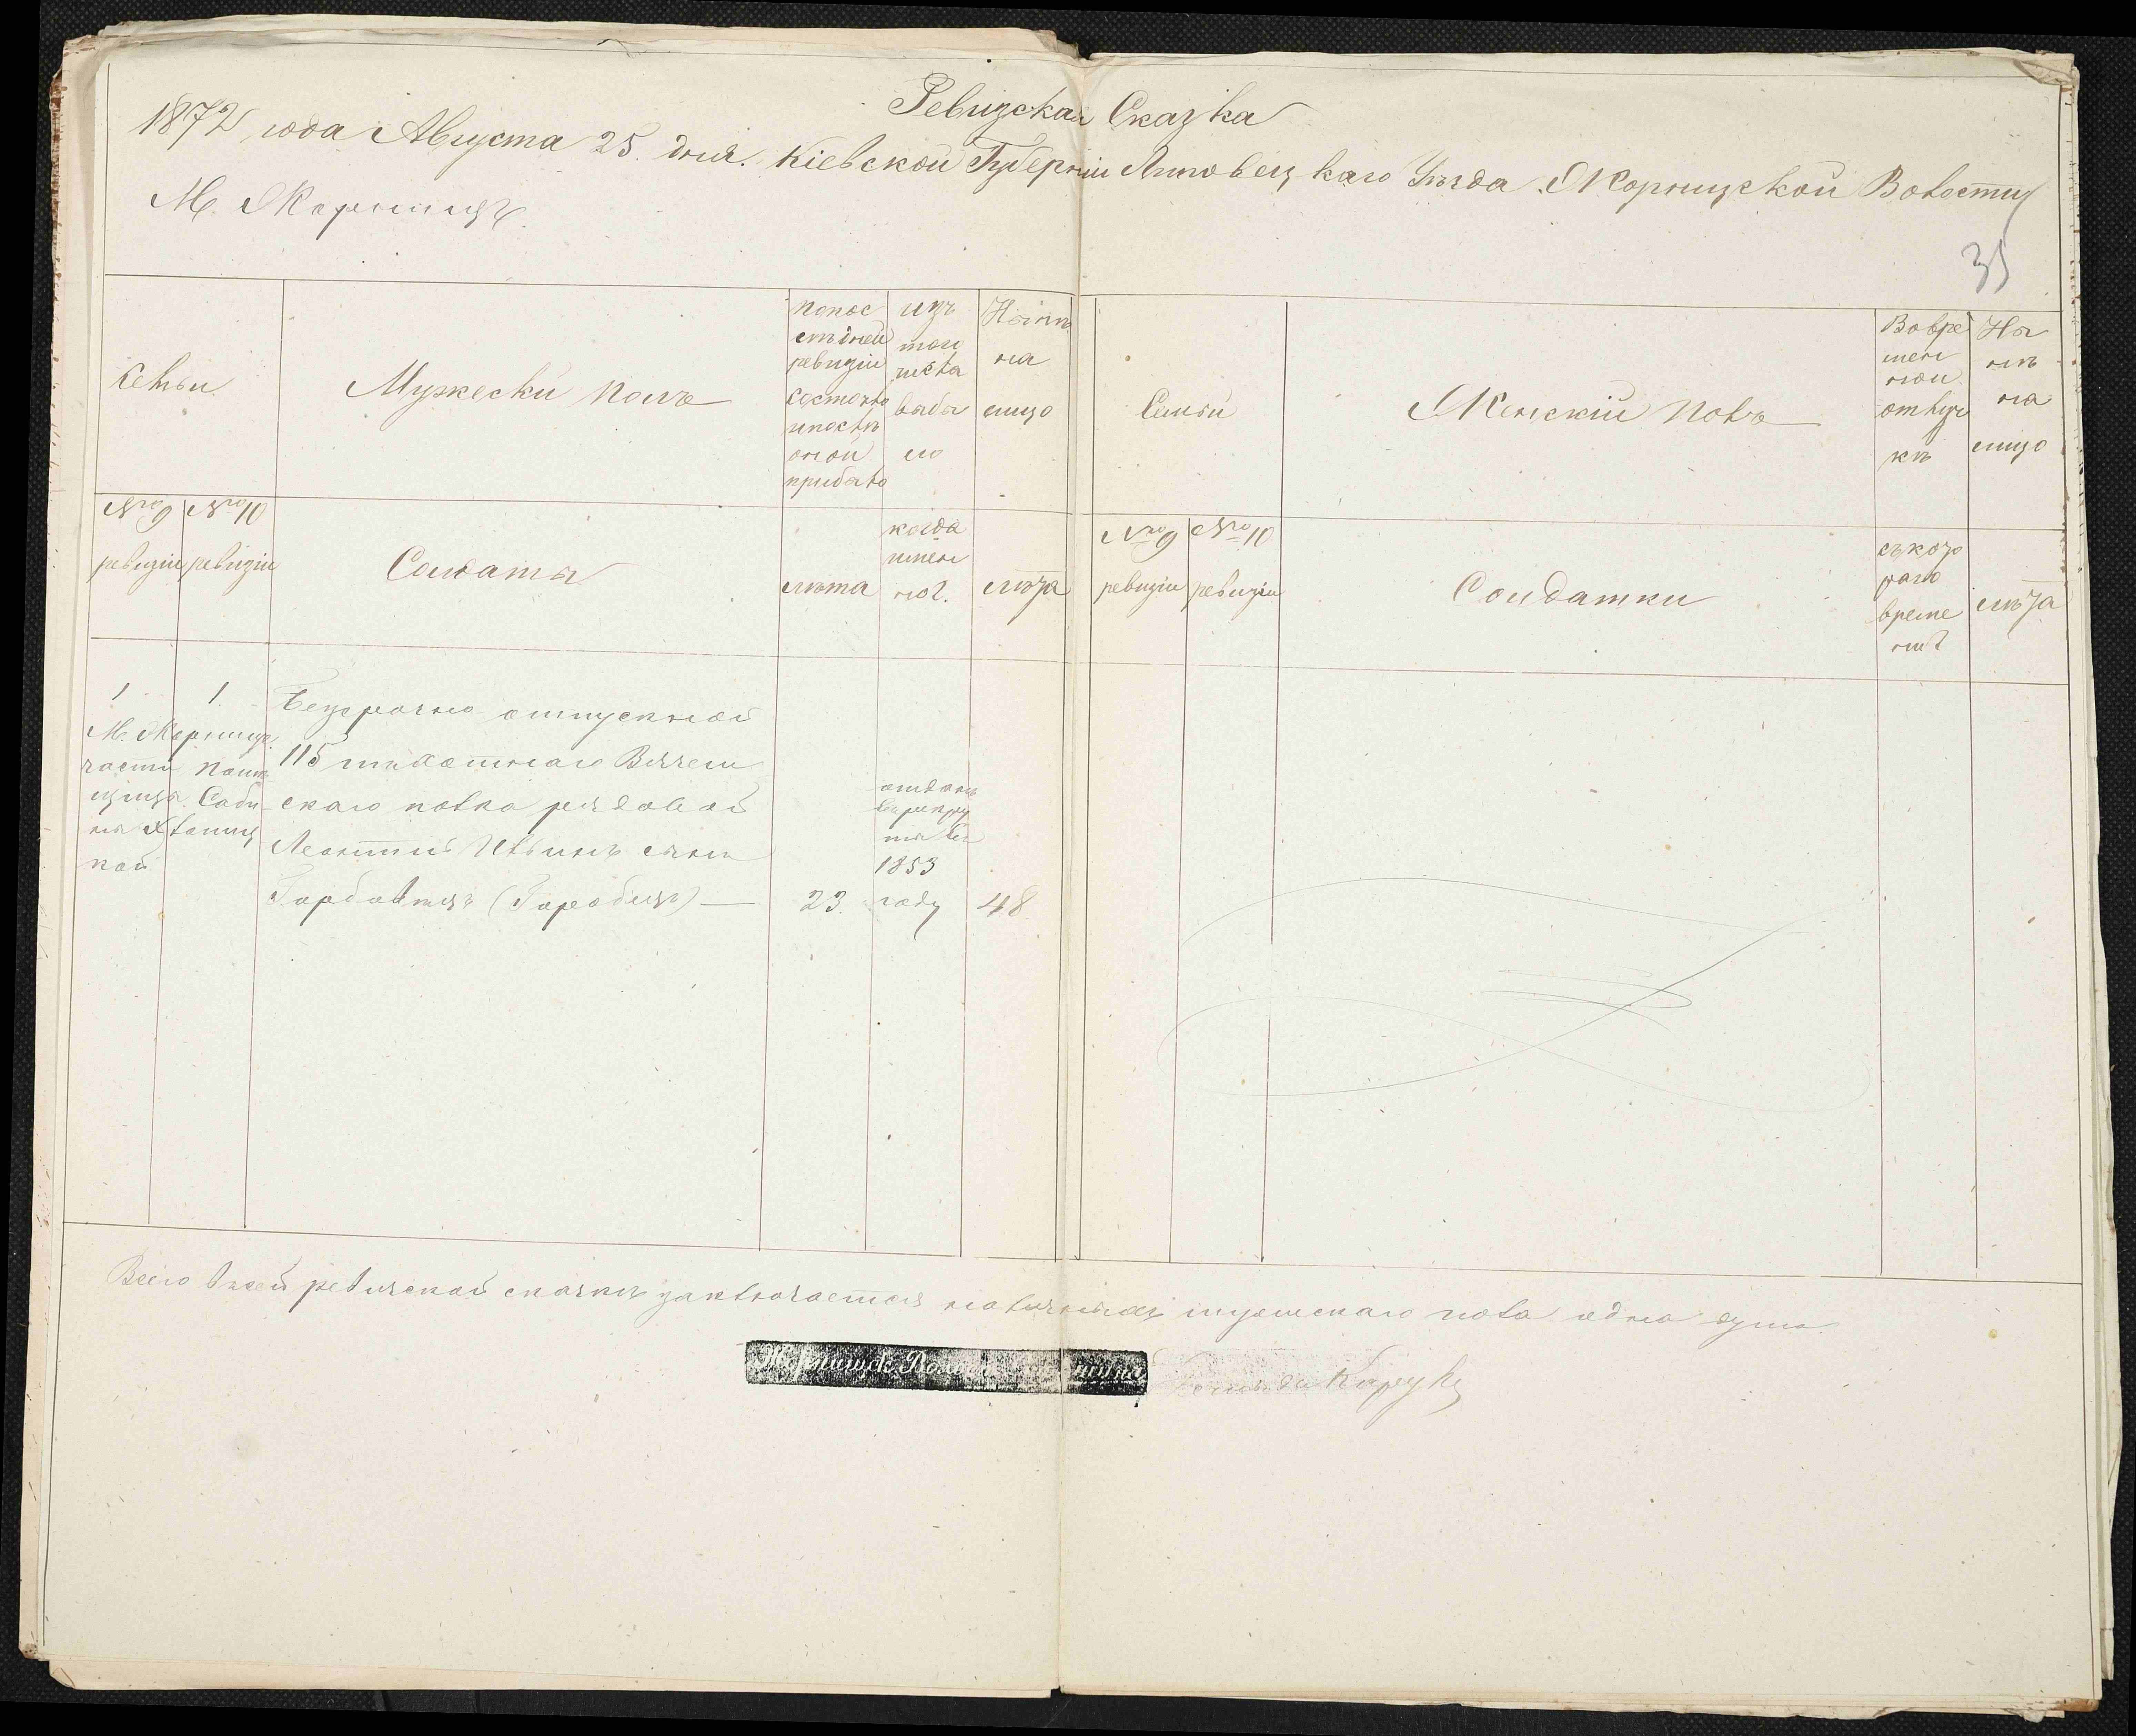 Ревизская Сказка
1872 года Августа 25. дня. Кіевской Губерніи Липовецкаго Уѣзда Жорнищской Волости
М. Жорнищъ
35
Семьи
Мужески полъ
По пос
лѣдней
ревизіи
состояло
и послѣ
оной
прибыло
изъ
того
числа
выбы
ло
Нынѣ
на
лицо
Семьи
Женскій полъ
Во вре
мен
ной
отлуч
кѣ
Ны
нѣ
на
лицо
№ 9
ревизіи
№ 10
ревизіи
Солдаты
лѣта
когда
имен
но.
лѣта
№ 9
ревизіи
№ 10
ревизіи
Солдатки
съ кото
раго
време
ни
лѣта
1 1.
М. Жорнищъ
части помѣ
щицы Саби
ны
Безсрочно отпускной
115 пѣхотнаго Вяземскаго полка рядовой
Леонтій Ильинъ сынъ
Горобецъ) — 23.
отданъ
въ рекру
ты въ
1853
году
48
Всего въ сей ревизской сказкѣ заключается наличныхъ мужескаго пола одна душа.
Жорнищск. Волост. Старшина